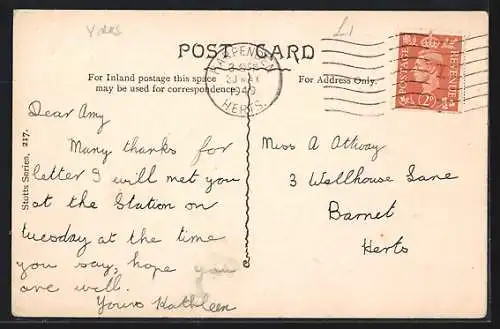 Yorks
£1
POST CARD
For Inland postage this space
may be used for correspondence.
For Address Only.
HARPENDEN
1949
HERTS.
POSTAGE
REVENUE
2D
Stotts Series, 217.
Dear Amy
Many thanks for
letter I will met you
at the Station on
tuesday at the time
you say, hope you
are well.
Yours Kathleen
Miss A Otway
3 Wellhouse Lane
Barnet
Herts